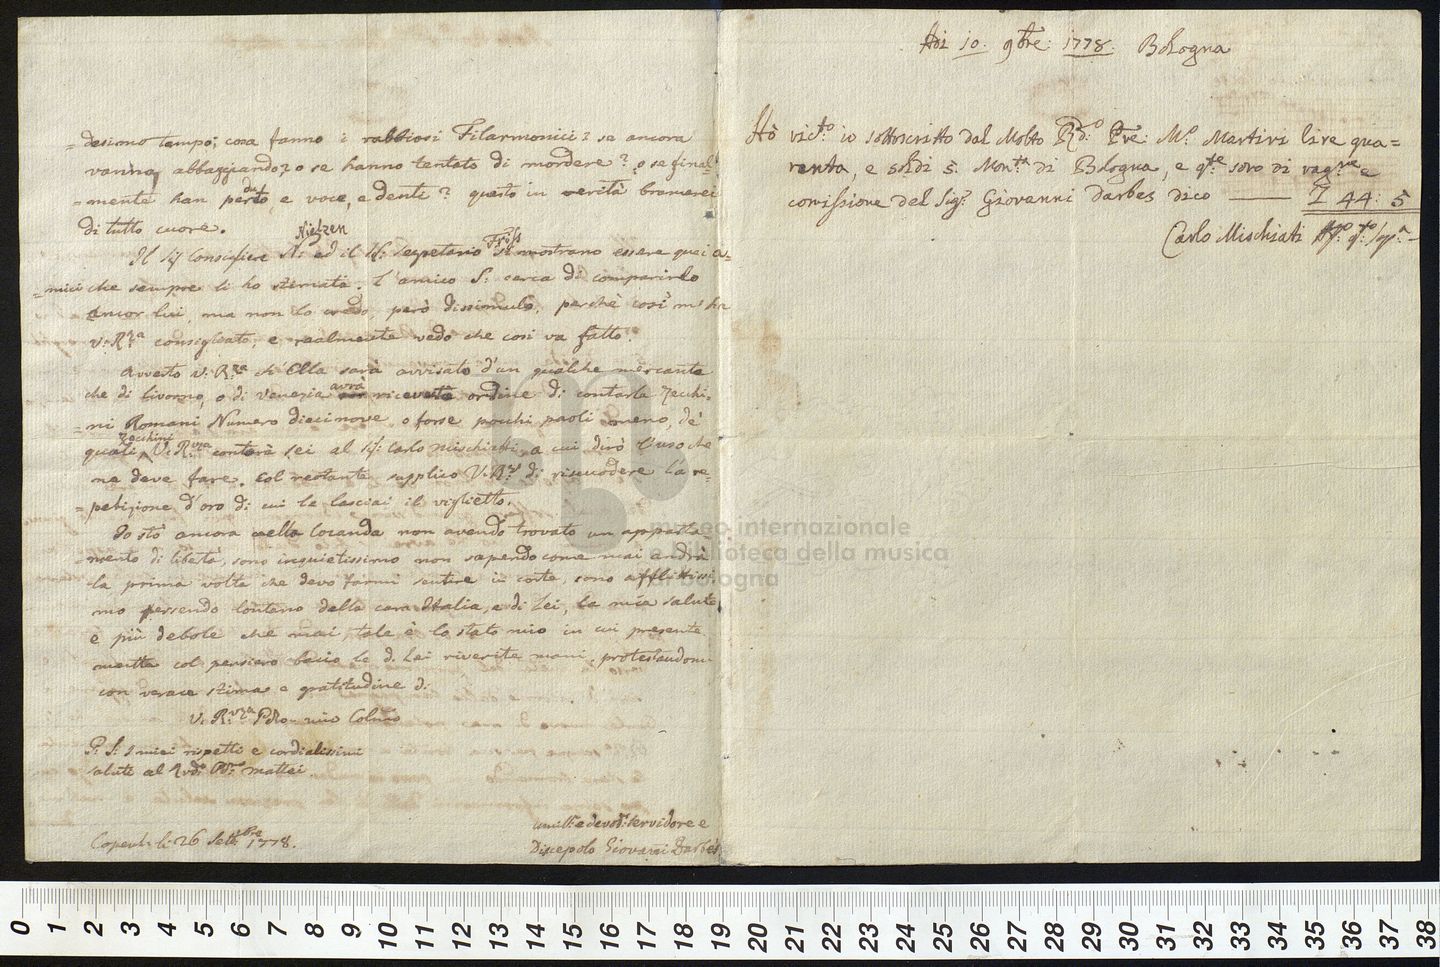 =desimo tempo; cosa fanno i rabbiosi Filarmonici? se ancora
vanno abbaggiando? o se hanno tentato di mordere? o se final=
=mente han perduto, e voce, e denti? questo in verità bramerei
di tutto cuore.
Nielzen
Il Sig. Consigliere N: ed il Sr. segretario Fross si mostrano essere quei a=
=mici che sempre li ho stimati. l'amico S: cerca di comparirlo
Ancor lui, ma non lo credo, però dissimulo, perchè così m'ha
V: Rza consigliato, e realmente vedo che così va fatto.
Averto V: Rza ch'Ella sarà avvisato d'un qualche mercante
che di livorno, o di Venezia avrà ricevuta ordine di contarla Zecchi=
=ni Romani Numero diecinove o forse pochi paoli meno, de'
quali Zecchini V: Rvza conterà sei al Sig. Carlo Mischiatti, a cui dirò l'uso che
ne deve fare. Col restante supplico V. Rza di riscuodere la re=
=petizione d'oro di cui le lasciai il viglietto.
Io stò ancora nella locanda non avendo trovato un apparta=
=mento di libertà, sono inquietissimo non sapendo come mai andrà
la prima volta che devo farmi sentire in corte, sono afflittissi
mo essendo lontano della cara Italia, e di Lei, la mia salute
è più debole che mai, tale è lo stato mio in cui presente
mente col pensiero bacio le di Lei riverite mani, protestandomi
con verace stima e gratitudine di
V. Rvza Pdro- mio Colmo
P: S: I miei rispetti e cordialissimi
saluti al Rvdo Pdre mattei.
umille e devoto: servidore e
Copenh. li 26 Settbre 1778.
Discepolo Giovanni Darbes
Adi 10. 9bre: 1778. Bologna
Hò victo io sottoscritto dal Molto Rdo Pre: Mo Martini lire qua=
ranta, e soldi 5. Monta di Bologna, e qste sono di ragne e
comissione del Sigr Giovanni Darbes dico —— L 44: 5
Carlo Mischiati
museo internazionale
e biblioteca della musica
di bologna
0 1 2 3 4 5 6 7 8 9 10 11 12 13 14 15 16 17 18 19 20 21 22 23 24 25 26 27 28 29 30 31 32 33 34 35 36 37 38